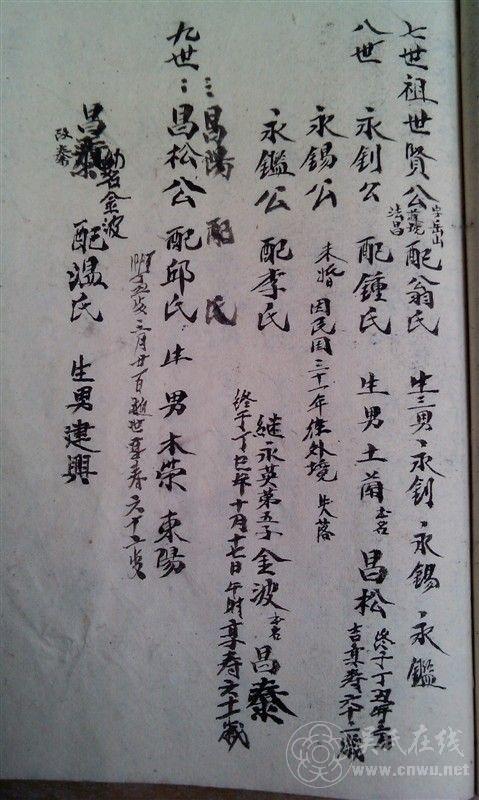 七世祖世賢公字岳山法昌配翁氏 生三男永釗永錫永鑑
八世 永釗公 配鍾氏 生男土蘭 名昌松
吉享寿六十二歲
永錫公 未婚 因民国三十一年往外境 失落
永鑑公 配李氏 継永英弟五子金波 名昌泰
終于丁巳年十月十七日午時享寿六十一歲
昌陽 配 氏
九世 昌松公 配邱氏 生男木榮 東陽
三月廿 日逝世享寿六十二歲
昌泰 幼名金波 改泰 配温氏 生男建興
吴氏在线
www.cnwu.net